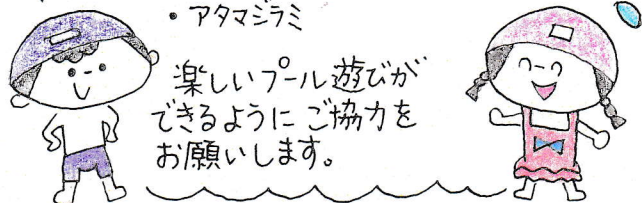 • アタマジラミ
楽しいプール遊びが
できるようにご協力を
お願いします。